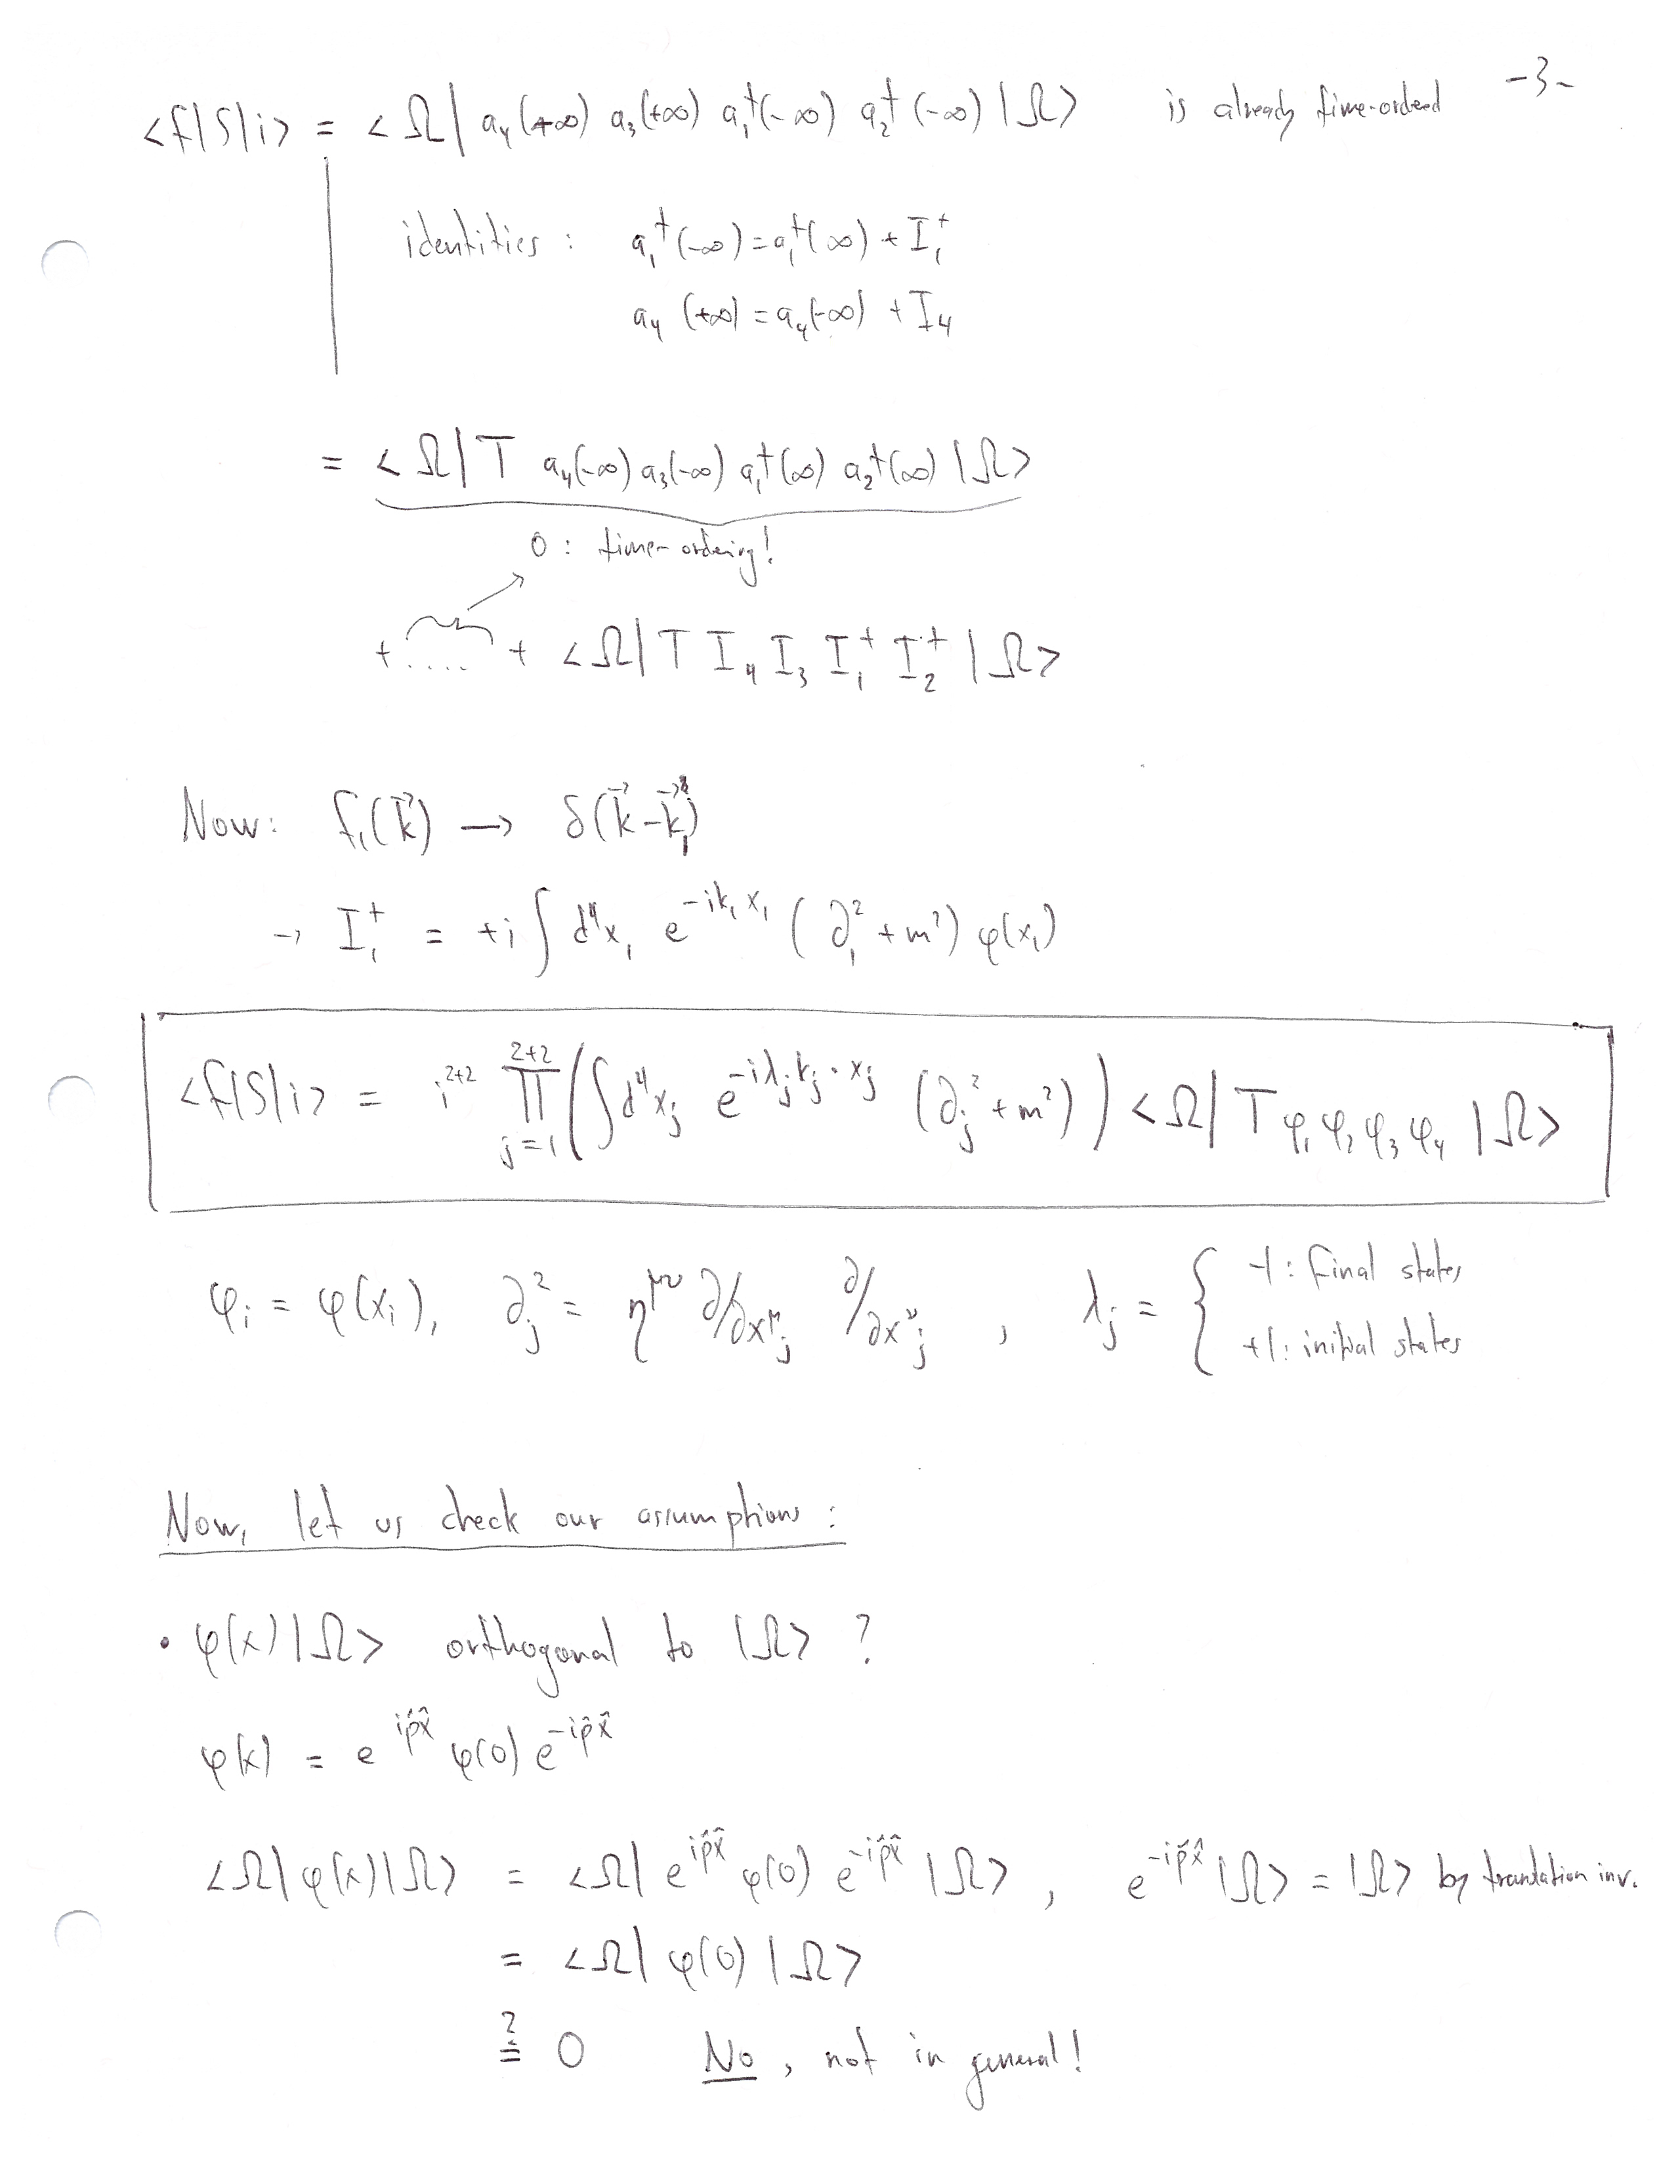 -3-
<f|S|i> = <Ω| a₄(+∞) a₃(+∞) a₁†(-∞) a₂†(-∞) |Ω> is already time-ordered
identities : a₁†(-∞) = a₁†(∞) + I₁†
a₄(+∞) = a₄(-∞) + I₄
= <Ω| T a₄(-∞) a₃(-∞) a₁†(∞) a₂†(∞) |Ω>
0 : time-ordering!
+ .... + <Ω| T I₄ I₃ I₁† I₂† |Ω>
Now: f₁(k⃗) → δ(k⃗-k⃗₁)
→ I₁† = +i ∫ d⁴x₁ e^{-ik₁x₁} (∂₁² + m²) φ(x₁)
<f|S|i> = i^{2+2} ∏_{j=1}^{2+2} (∫ d⁴x_j e^{-iλ_j k_j · x_j} (∂_j² + m²)) <Ω| T φ₁ φ₂ φ₃ φ₄ |Ω>
φ_i = φ(x_i), ∂_j² = η^{μν} ∂/∂x^μ_j ∂/∂x^ν_j , λ_j = { -1: final states
+1: initial states
Now, let us check our assumptions:
• φ(x)|Ω> orthogonal to |Ω> ?
φ(x) = e^{ip̂x̂} φ(0) e^{-ip̂x̂}
<Ω| φ(x) |Ω> = <Ω| e^{ip̂x̂} φ(0) e^{-ip̂x̂} |Ω> , e^{-ip̂x̂} |Ω> = |Ω> by translation inv.
= <Ω| φ(0) |Ω>
≟ 0 No, not in general!